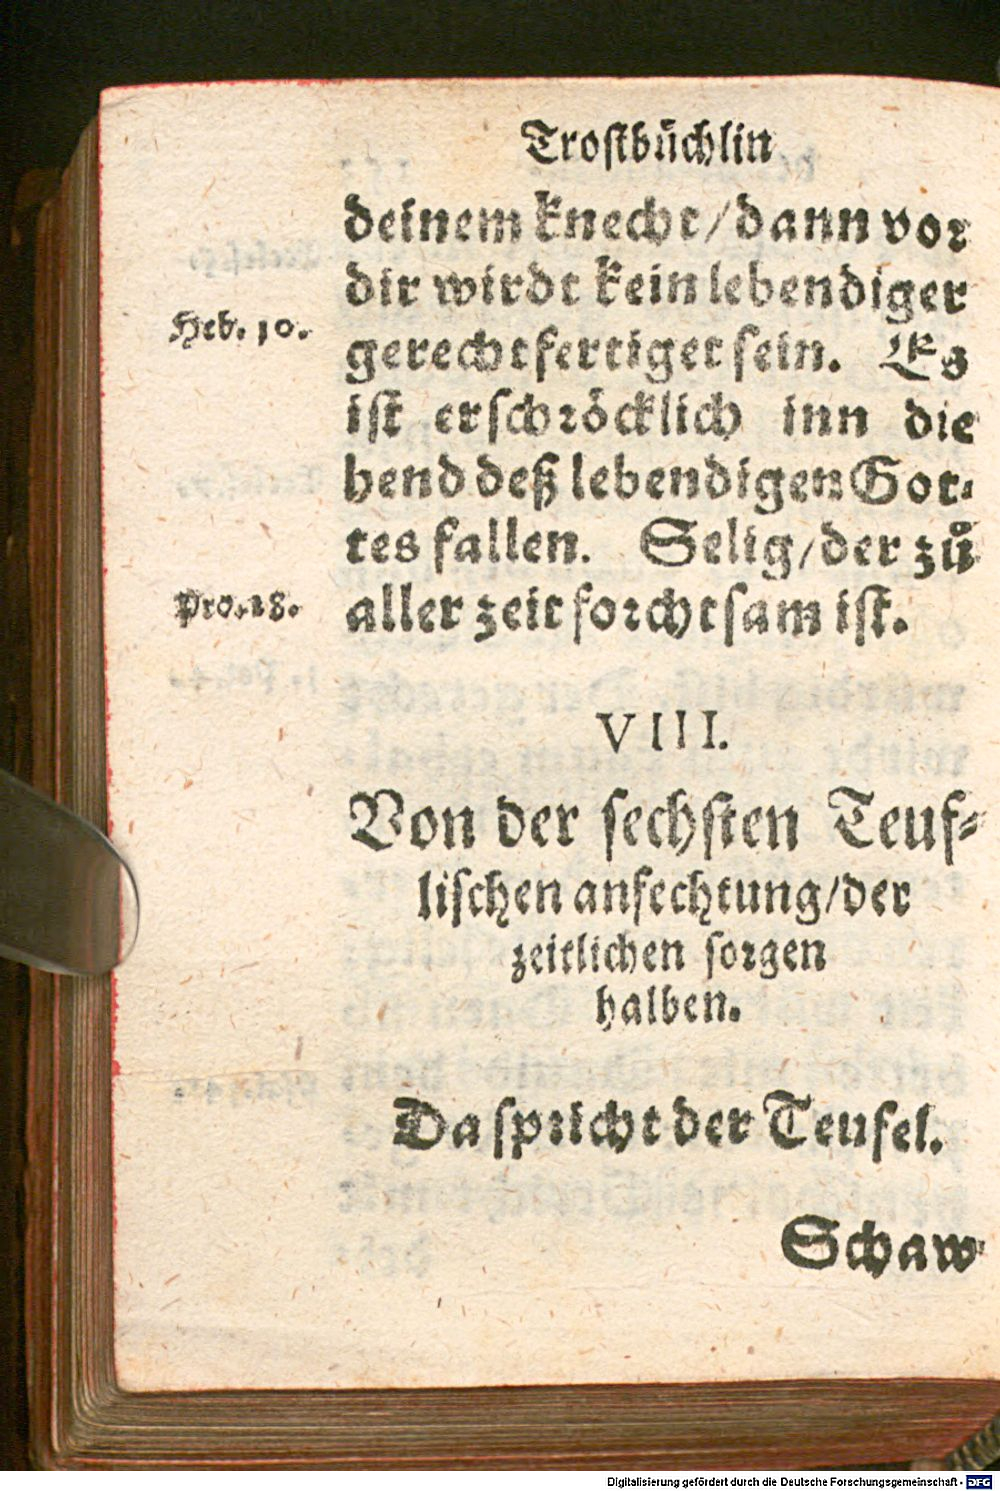 Trostbüchlin
deinem knecht/dann vor
dir wirdt kein lebendiger
Heb. 10.
gerechtfertiget sein. Es
ist erschröcklich inn die
hend deß lebendigen Got-
tes fallen. Selig/der zů
Pro. 28.
aller zeit forchtsam ist.
VIII.
Von der sechsten Teuf-
lischen anfechtung/der
zeitlichen sorgen
halben.
Da spricht der Teufel.
Schaw
Digitalisierung gefördert durch die Deutsche Forschungsgemeinschaft - DFG